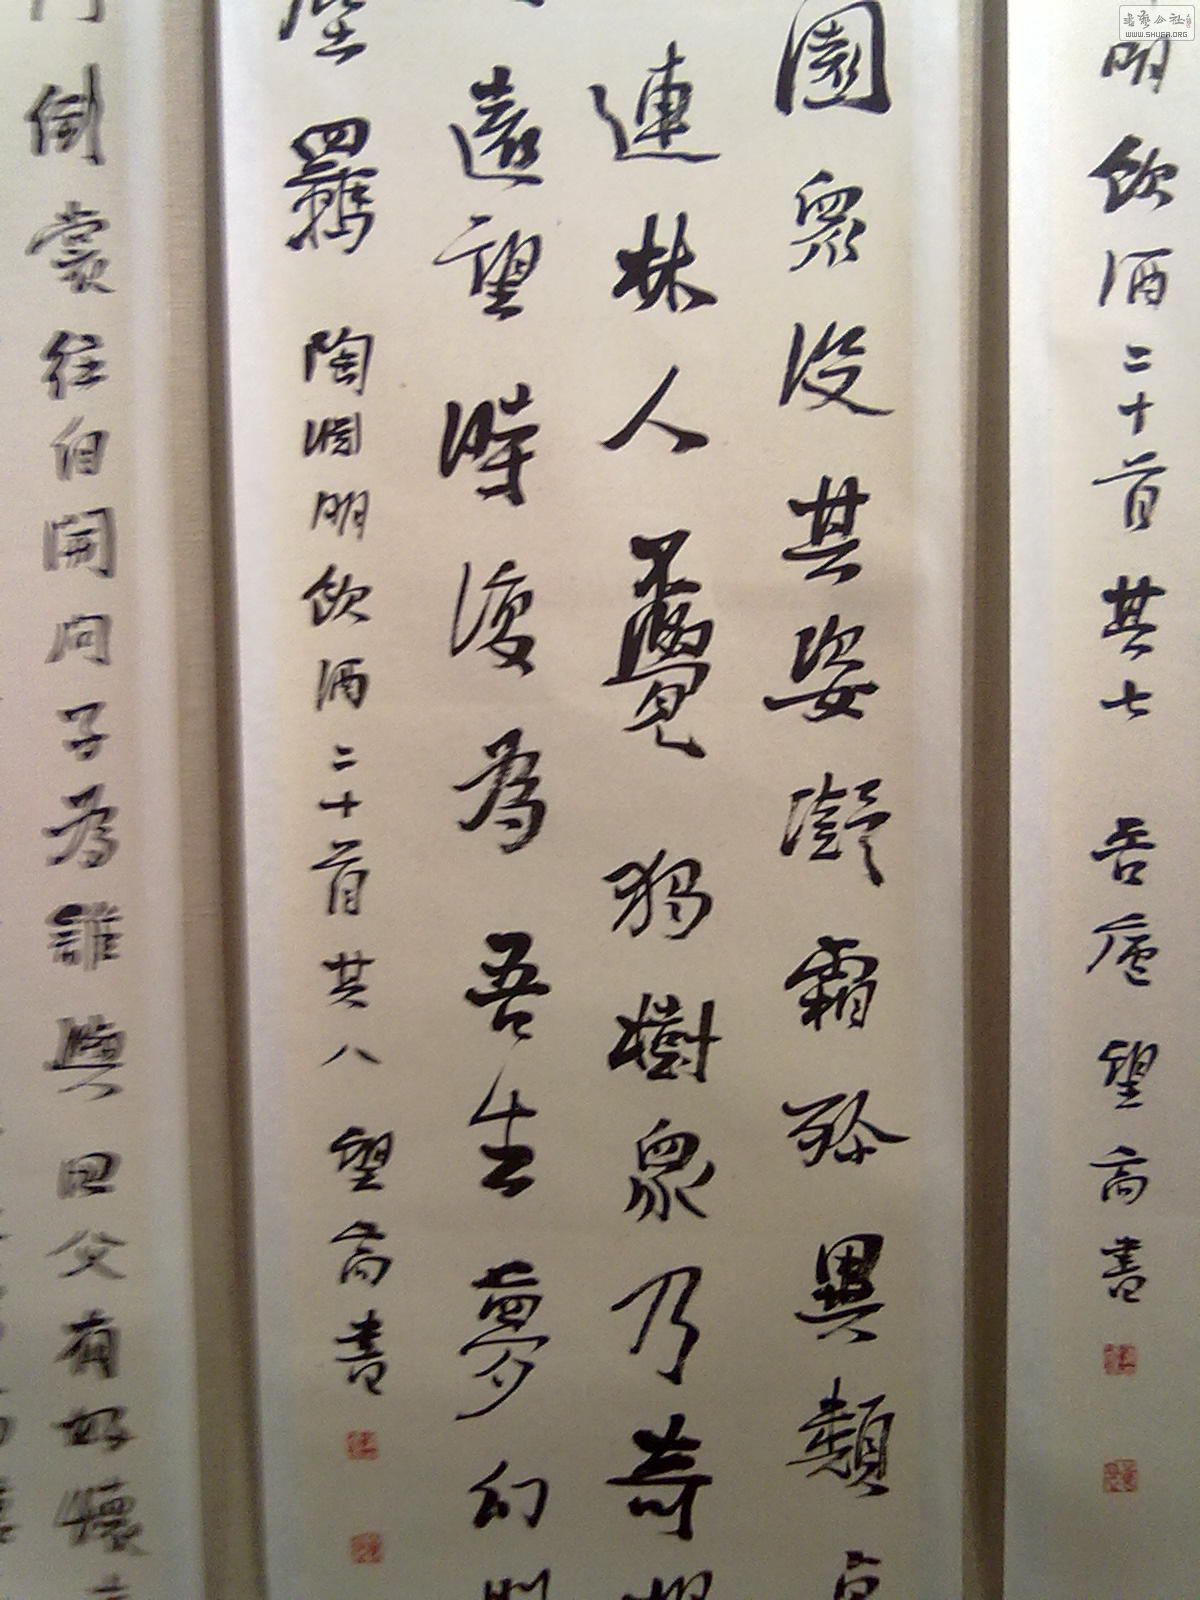 书艺公社
WWW.SHUFA.ORG
明飲酒二十首其七 吾廬望嵩書
園衆没其姿凝霜殄異類卓
連林人不覺獨樹衆乃奇提
遠望時復為吾生夢幻間
塵羈 陶淵明飲酒二十首其八 望嵩書
倒裳往自開問子為誰與田父有好懷